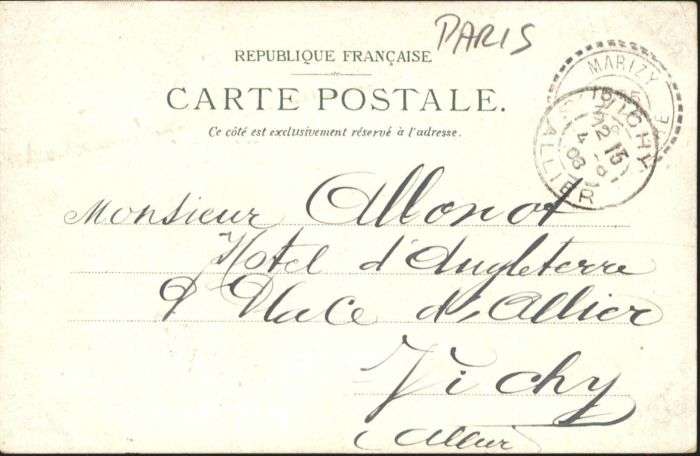 PARIS
REPUBLIQUE FRANÇAISE
CARTE POSTALE.
Ce côté est exclusivement réservé à l'adresse.
MARIZY
VICHY
ALLIER
Monsieur Allonot
Hotel d'Angleterre
9 Place d'Allier
Vichy
Allier